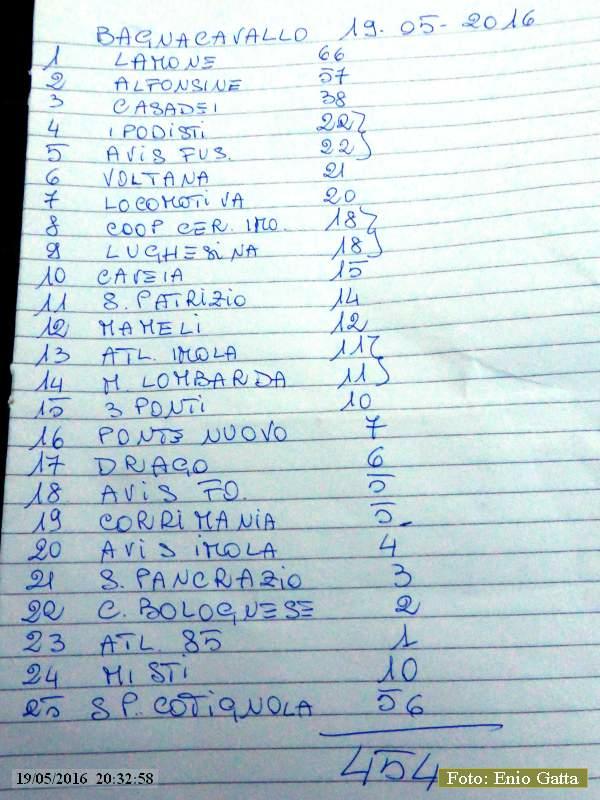 BAGNACAVALLO 19.05-2016
1 LAMONE 66
2 ALFONSINE 57
3 CASADEI 38
4 IPODISTI 22}
5 AVIS FUS. 22}
6 VOLTANA 21
7 LOCOMOTIVA 20
8 COOP CER. IMO. 18}
9 LUGHESINA 18}
10 CAVEIA 15
11 S. PATRIZIO 14
12 MAMELI 12
13 ATL. IMOLA 11}
14 M. LOMBARDA 11}
15 3 PONTI 10
16 PONTE NUOVO 7
17 DRAGO 6
18 AVIS FO. 5
19 CORRIMANIA 5
20 AVIS IMOLA 4
21 S. PANCRAZIO 3
22 C. BOLOGNESE 2
23 ATL. 85 1
24 MISTI 10
25 SP. COTIGNOLA 56
454
19/05/2016 20:32:58
Foto: Enio Gatta